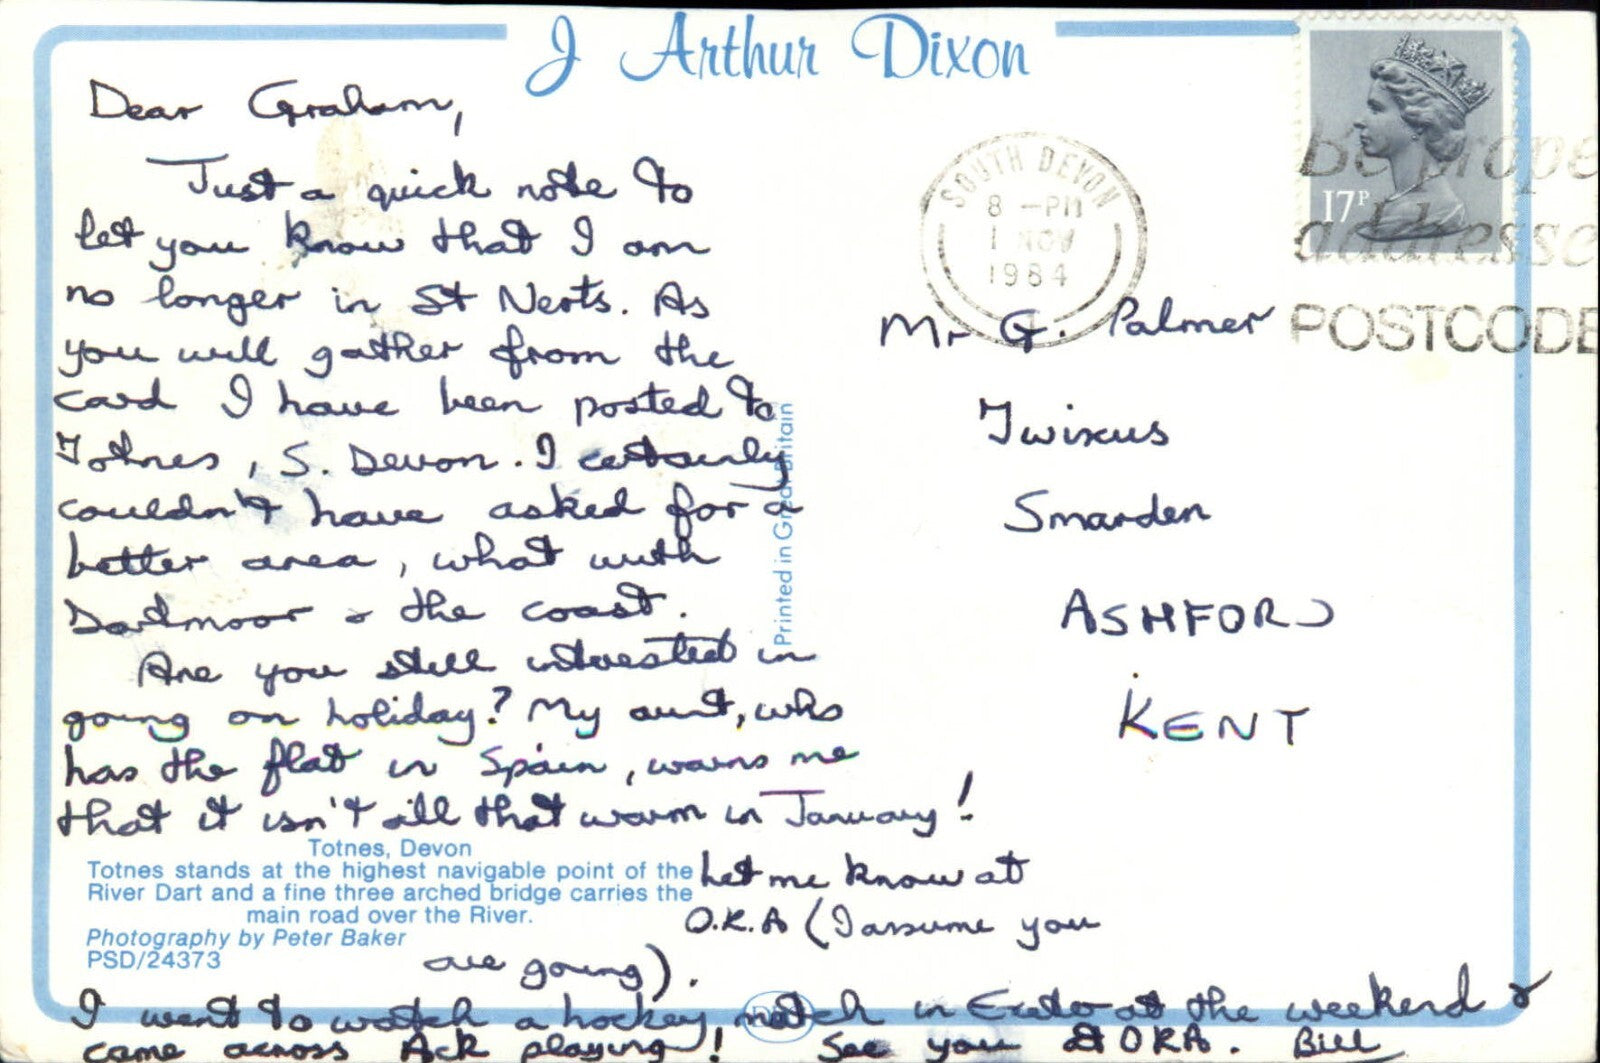 J Arthur Dixon
Dear Graham,
Just a quick note to
let you know that I am
no longer in St Neots. As
you will gather from the
card I have been posted to
Totnes, S. Devon. I certainly
couldn't have asked for a
better area, what with
Dartmoor & the coast.
Are you still interested in
going on holiday? My aunt, who
has the flat in Spain, warns me
that it isn't all that warm in January!
Let me know at
O.K.A (I assume you
are going).
I went to watch a hockey match in Exeter at the weekend &
came across Ack playing! See you at OKA. Bill
Totnes, Devon
Totnes stands at the highest navigable point of the
River Dart and a fine three arched bridge carries the
main road over the River.
Photography by Peter Baker
PSD/24373
Printed in Great Britain
SOUTH DEVON
8 -PM
1 NOV
1984
17P
Be prope
addresse
POSTCODE
Mr G. Palmer
Twixus
Smarden
ASHFORD
KENT